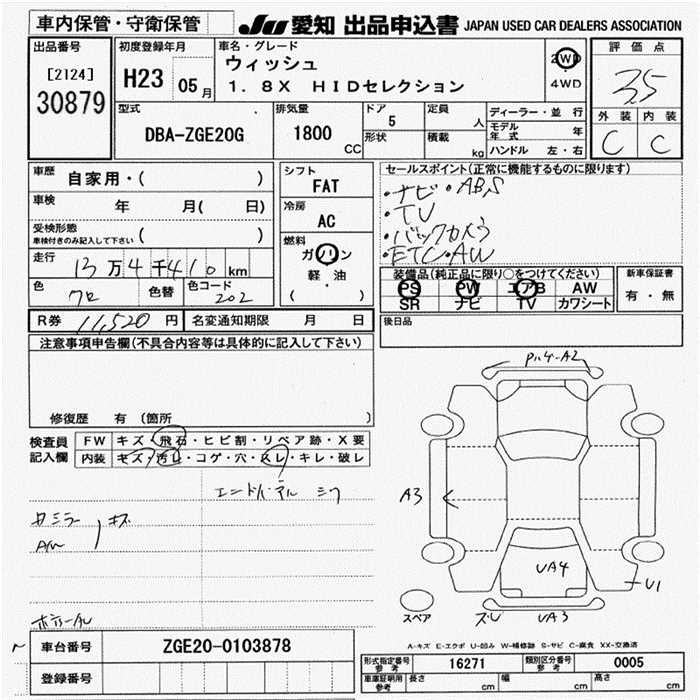 車内保管・守衛保管
JU 愛知 出品申込書 JAPAN USED CAR DEALERS ASSOCIATION
出品番号
[2124]
30879
初度登録年月
H23 05月
車名・グレード
ウィッシュ
1.8X HIDセレクション
2WD
4WD
評価点
3.5
外装 内装
C C
型式
DBA-ZGE20G
排気量
1800 CC
ドア
5
形状
定員
人
積載
kg
ディーラー・並行
モデル年式 年
ハンドル 左・右
車歴 自家用・( )
車検 年 月( 日)
受検形態
車検付きのみ記入して下さい ( )
走行 13万4千410km
色 クロ 色替 色コード 202
シフト
FAT
冷房
AC
燃料
ガソリン
軽・油
( )
セールスポイント(正常に機能するものに限ります)
・ナビ・ABS
・TV
・バックカメラ
・ETC・AW
装備品(純正品に限り○をつけてください)
PS PW エアB AW
SR ナビ TV カワシート
新車保証書
有・無
R券 11,520円 名変通知期限 月 日
後日品
注意事項申告欄(不具合内容等は具体的に記入して下さい)
修復歴 有 (箇所 )
検査員記入欄
FW キズ・飛石・ヒビ割・リペア跡・X要
内装 キズ・汚レ・コゲ・穴・スレ・キレ・破レ
カミラ
AW
キズ
A3
UA4
U1
UA3
スペア
A-キズ E-エクボ U-凹み W-補修跡 S-サビ C-腐食 XX-交換済
車台番号 ZGE20-0103878
登録番号
形式指定番号 参考 16271 類別区分番号 参考 0005
車庫証明用 参考 長さ cm 幅 cm 高さ cm